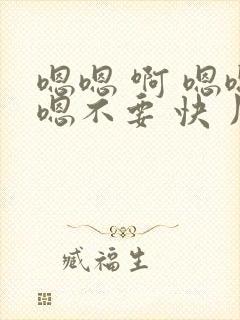 嗯嗯 啊 嗯
嗯不要 快
臧福生